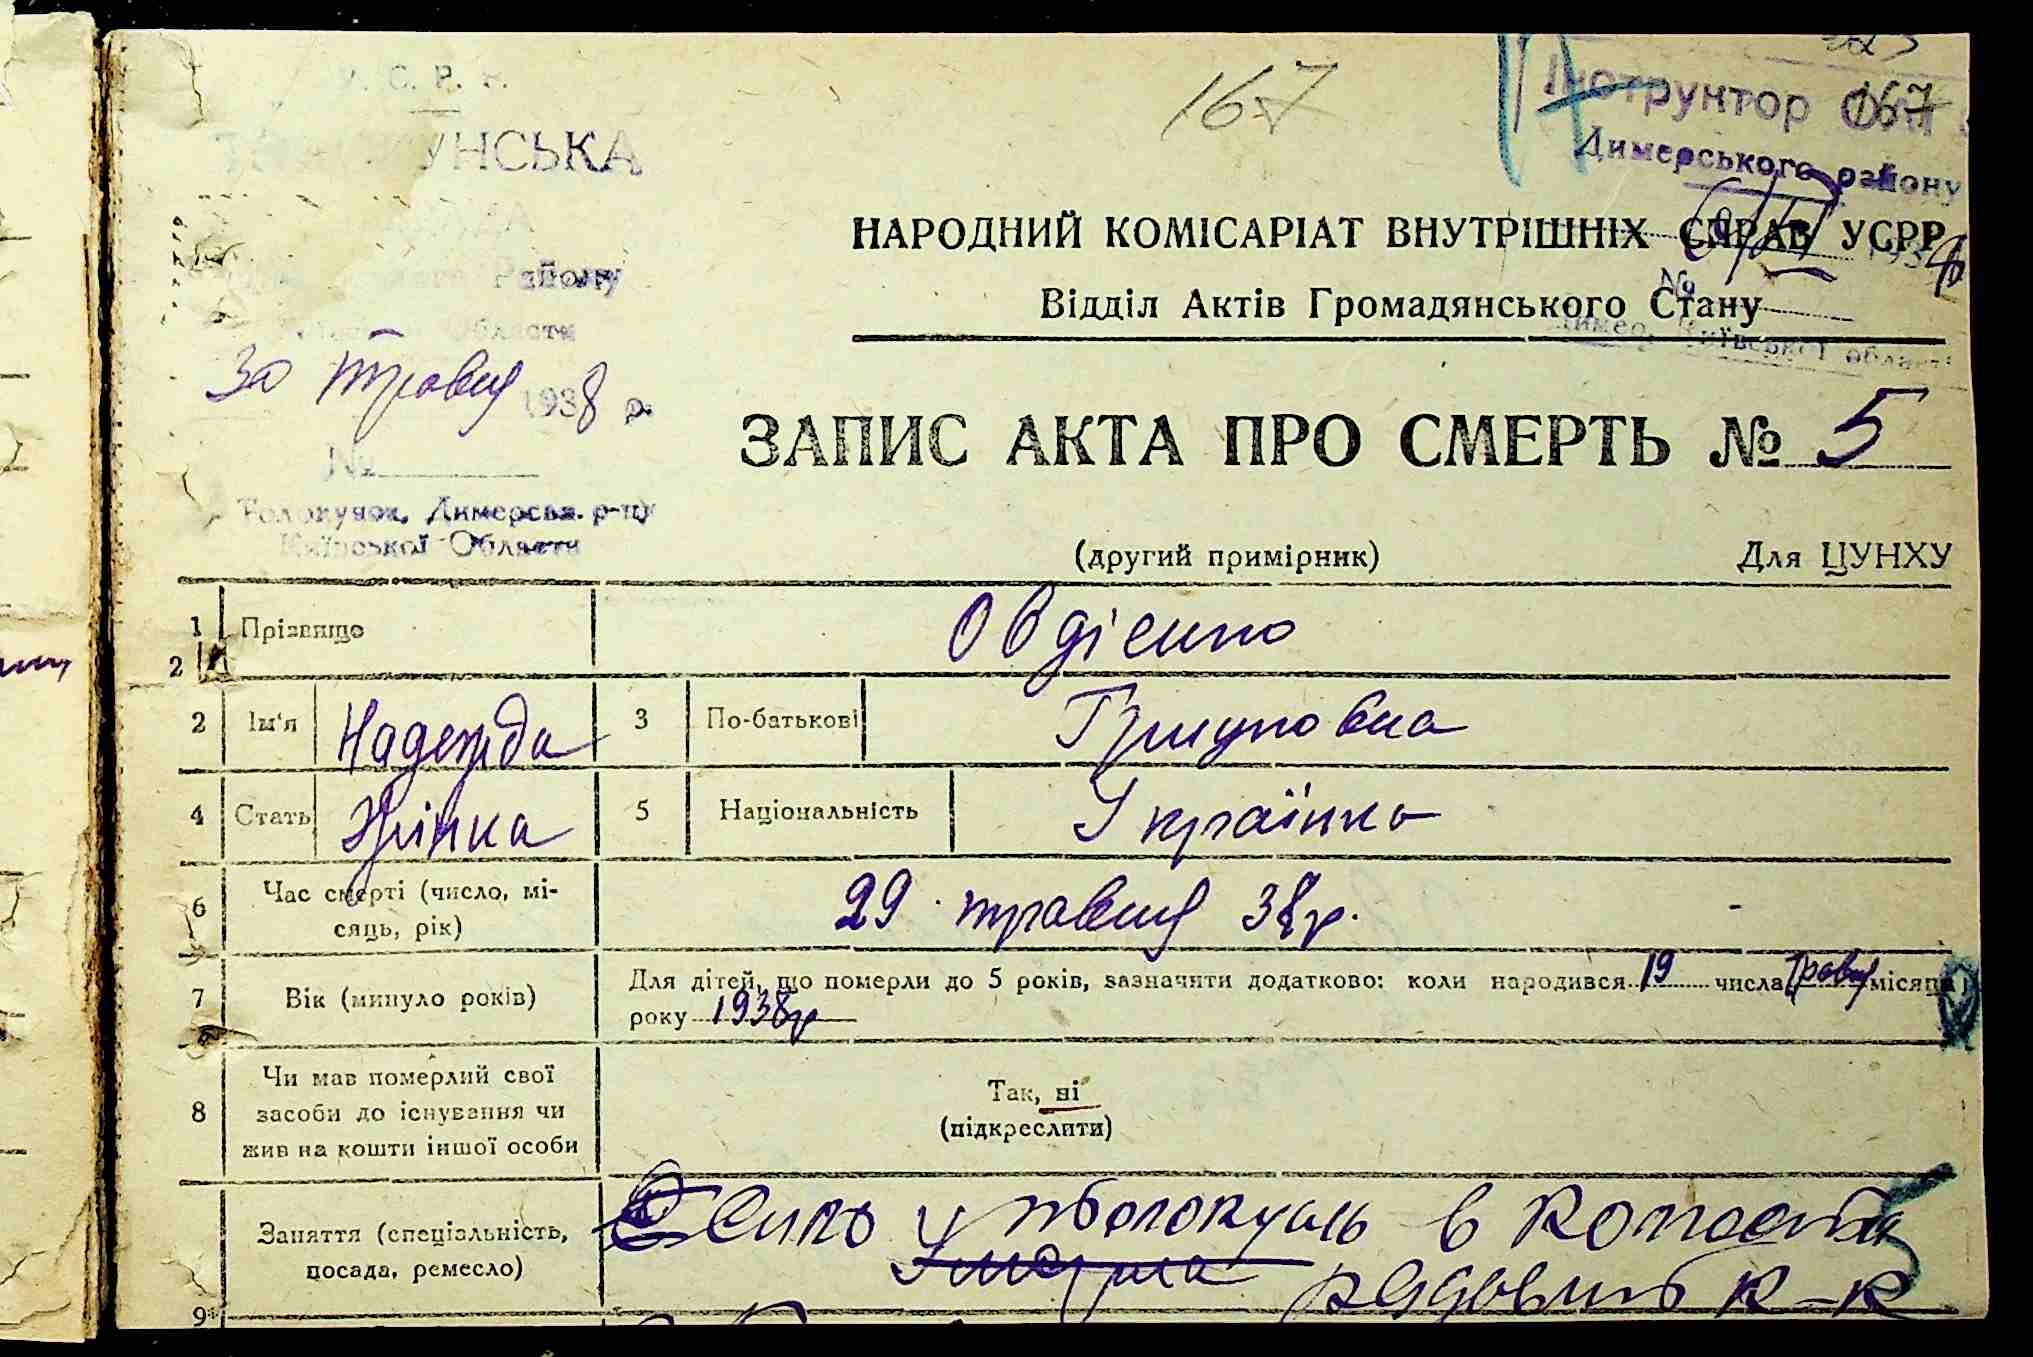 167
Інструктор
167
Димерського району
УНСЬКА
Району
Области
30 травня 1938 р.
№
НАРОДНИЙ КОМІСАРІАТ ВНУТРІШНІХ СПРАВ УСРР
№
Відділ Актів Громадянського Стану
Димер, Київської області
ЗАПИС АКТА ПРО СМЕРТЬ № 5
Толокунск, Димерськ. р-ну
Київської Области
(другий примірник) Для ЦУНХУ
1 Прізвище Овдієнко
2
2 Ім'я Надежда 3 По-батькові Грицковна
4 Стать Жінка 5 Національність Українка
6 Час смерті (число, місяць, рік) 29 травня 38 р.
7 Вік (минуло років) Для дітей, що померли до 5 років, зазначити додатково: коли народився 19 числа травня місяця
року 1938 р
8 Чи мав померлий свої
засоби до існування чи
жив на кошти іншої особи
Так, ні
(підкреслити)
Заняття (спеціальність,
посада, ремесло)
в
Умерла к-к
9